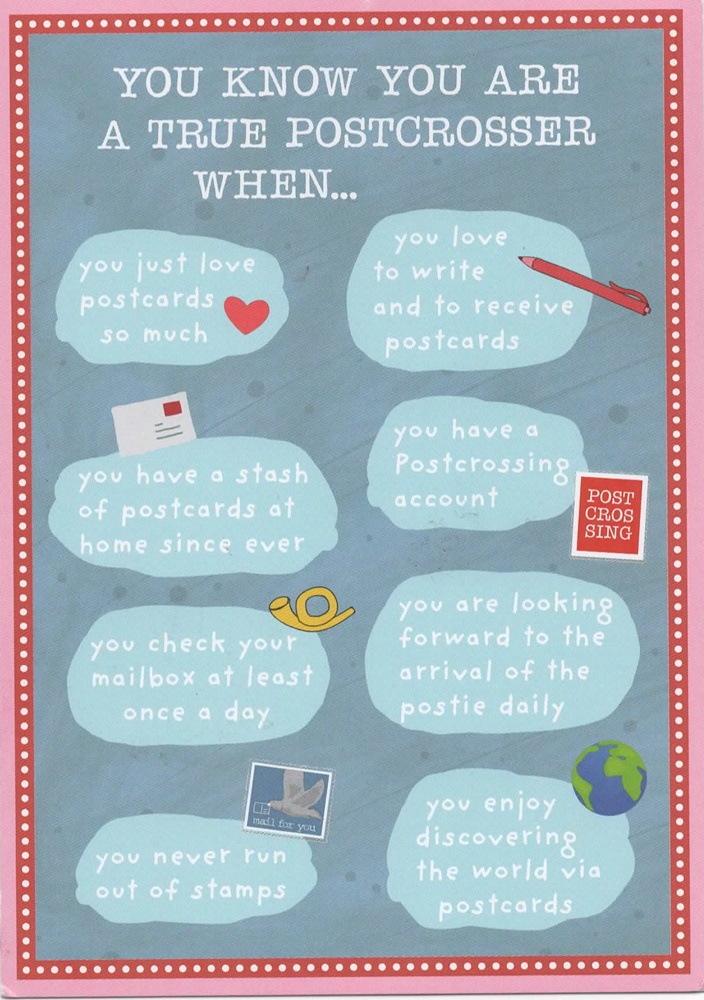 YOU KNOW YOU ARE
A TRUE POSTCROSSER
WHEN...
you just love
postcards
so much
you love
to write
and to receive
postcards
you have a stash
of postcards at
home since ever
you have a
Postcrossing
account
POST
CROS
SING
you check your
mailbox at least
once a day
you are looking
forward to the
arrival of the
postie daily
mail for you
you never run
out of stamps
you enjoy
discovering
the world via
postcards